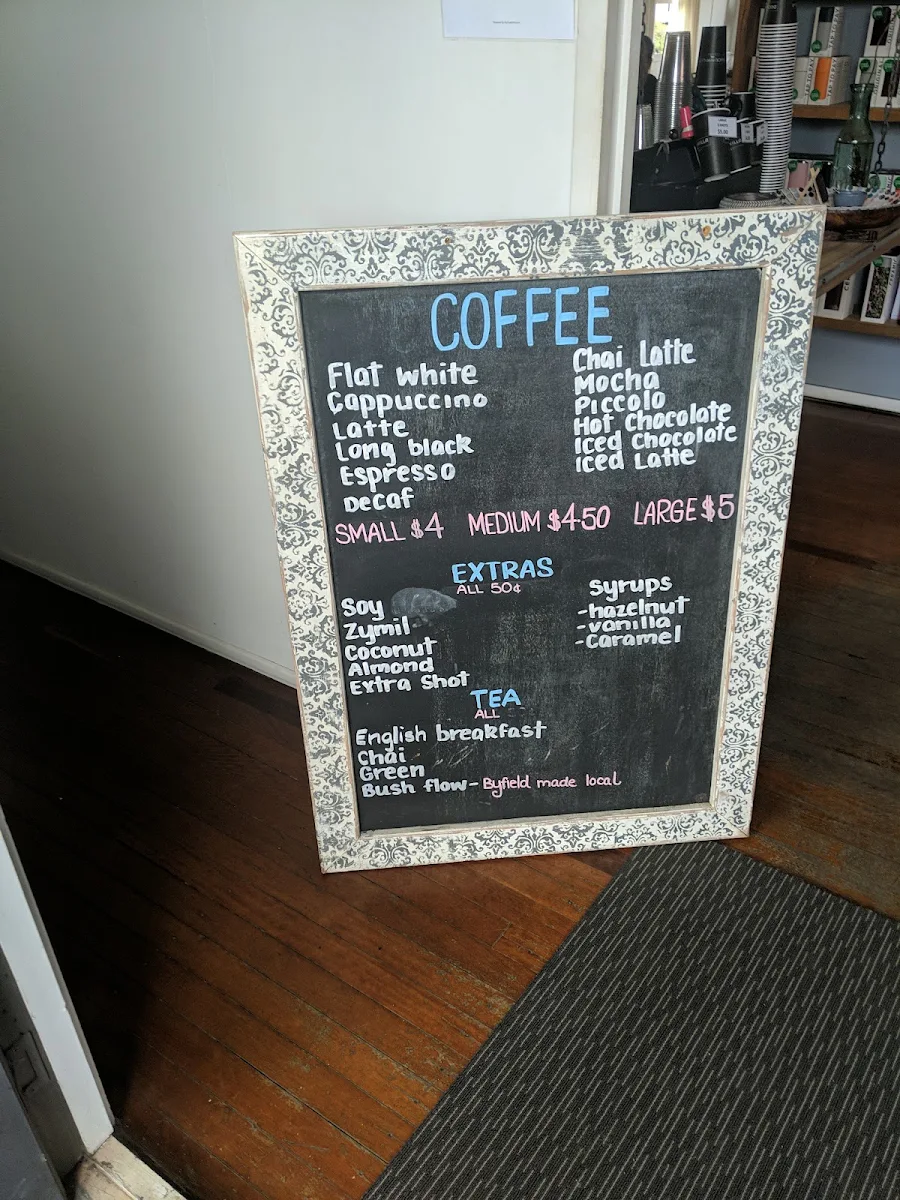 COFFEE
Flat white
Cappuccino
Latte
Long black
Espresso
Decaf
Chai Latte
Mocha
Piccolo
Hot Chocolate
Iced Chocolate
Iced Latte
SMALL $4 MEDIUM $4.50 LARGE $5
EXTRAS
ALL 50¢
Soy
Zymil
Coconut
Almond
Extra Shot
Syrups
-hazelnut
-vanilla
-Caramel
TEA
ALL
English breakfast
Chai
Green
Bush flow- Byfield made local